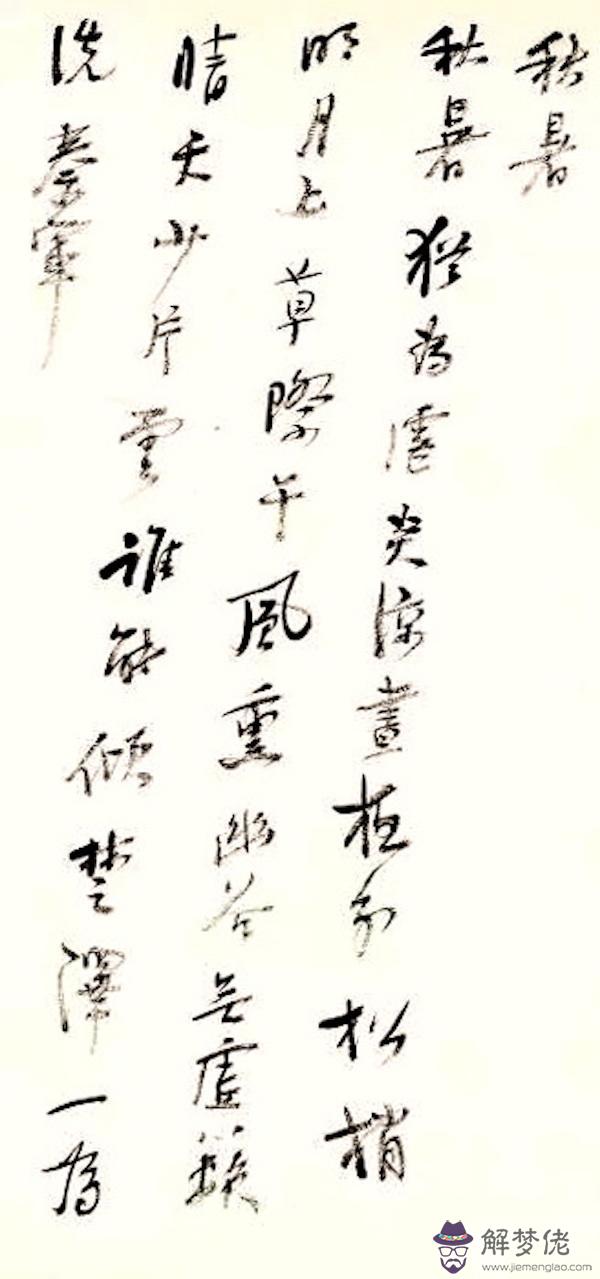 秋暑
秋暑猶為虐炎凉晝分松梢
明月上草際午風熏幽谷无虛籟
晴天少片雲誰能傾楚澤一為
洗秦軍
解梦佬
www.jiemenglao.com